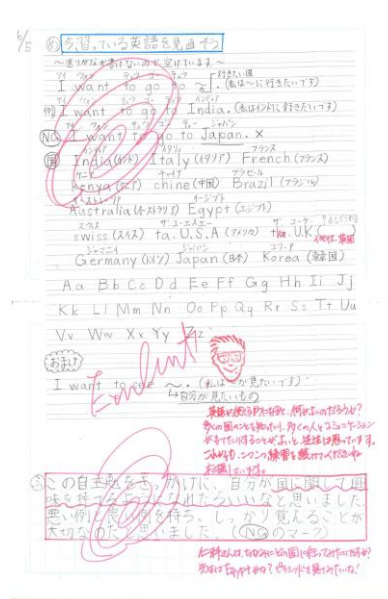 6/5
め 今、習っている英語を見直そう
アイ ウォント トゥー ゴー トゥー 行きたい国
I want to go to ～. (私は～に行きたいです)
例 I want to go to India. (私はインドに行きたいです)
NG I want to go to Japan. ×
国 India(インド) Italy(イタリア) French(フランス)
Kenya(ケニア) chine(中国) Brazil(ブラジル)
Australia(オーストラリア) Egypt(エジプト)
swiss(スイス) the.U.S.A(アメリカ) the.U.K
Germany(ドイツ) Japan(日本) Korea(韓国)
Aa Bb Cc Dd Ee Ff Gg Hh Ii Jj
Kk Ll Mm Nn Oo Pp Qq Rr Ss Tt Uu
Vv Ww Xx Yy Zz
おまけ
I want to see ～. (私は～が見たいです)
自分が見たいもの
Excellent
英語が使えるようになると、何がよいのだろうか?
多くの国の人と コミュニケーション
がとれたりすることがよいと、先生は思っています。
これからも、コツコツ練習を続けてくださいね
応援しています。
この自主勉をきっかけに、自分が国に関して興
味を持てるようになれたらいいなと思いました。
悪い例と良い例を持ち、しっかり覚えることが
大切なのだと思いました。(NGのマーク)